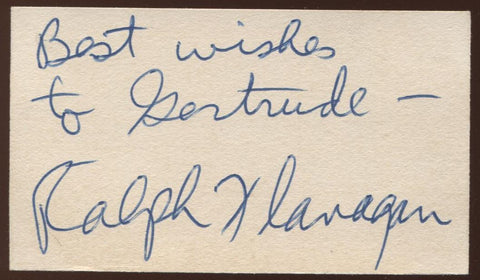 Best wishes
to Gertrude —
Ralph Flanagan